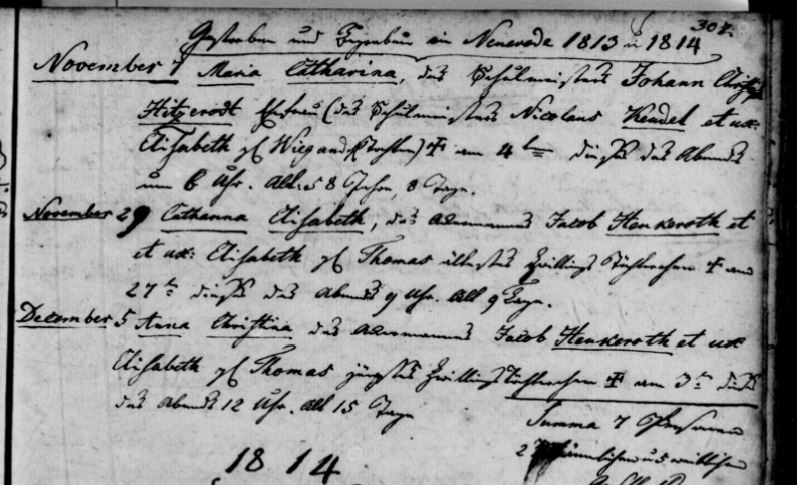 307.
Gestorben und Begraben in Neuerode 1813 u 1814
November 7 Maria Catharina, des Schulmeisters Johann
Hitzerodt Ehefrau (des Schulmeisters Nicolaus Kendel et ux:
Elisabeth Wiegand Tochter) † am 4ten dieses des Abends
um 6 Uhr. Alt: 58 Jahr, 8 Tage.
November 29 Catharina Elisabeth, des Ackermanns Jacob Henkeroth et
et ux: Elisabeth Thomas ältestes Zwillings Töchterchen † am
27ten dieses des Abends 9 Uhr. alt 9 Tage.
December 5 Anna Christina des Ackermanns Jacob Henkeroth et ux
Elisabeth Thomas jüngstes Zwillings Töchterchen † am 3ten dieses
des Abends 12 Uhr. alt 15 Tage
Summa 7 Personen
2 männlichen u 5 weiblichen
1814